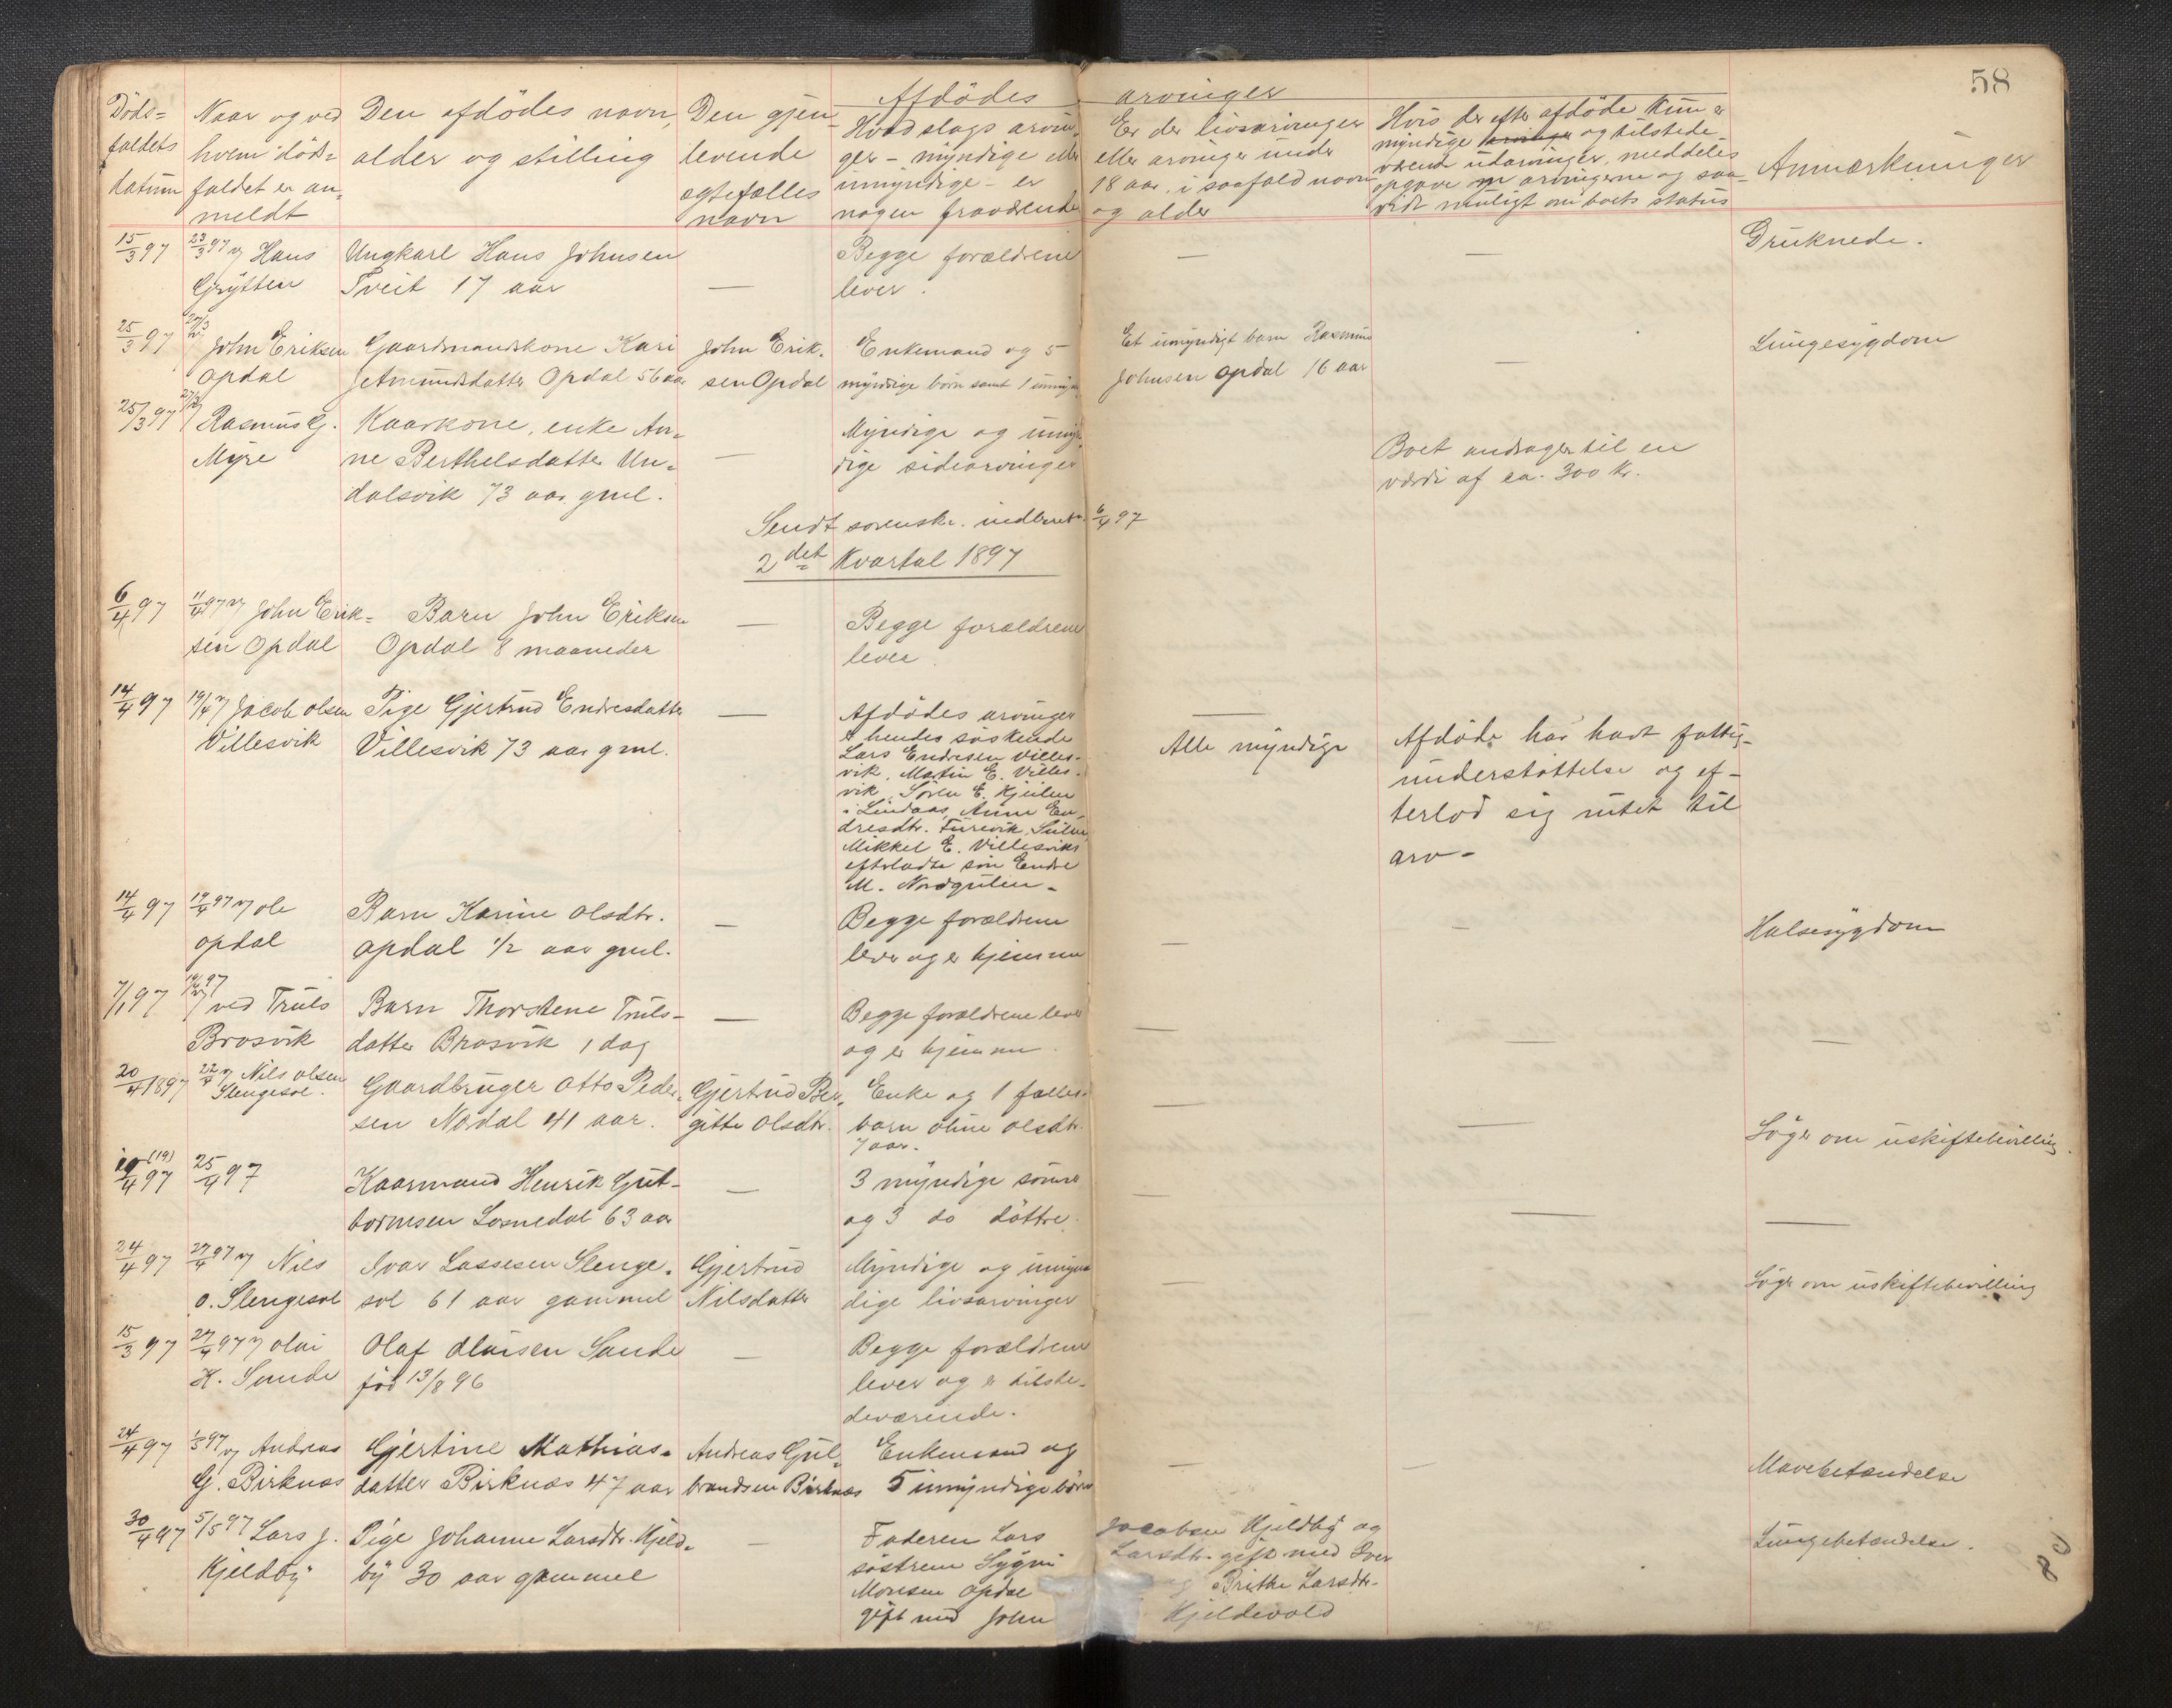 58
Afdödes arvinger
Döds=
faldets
datum
Naar og ved
hvem döds=
faldet er an=
meldt
Den afdödes navn,
alder og stilling
Den gjen=
levende
egtefælles
navn
Hvad slags arvin=
ger - myndige eller
umyndige - er
nogen fraværende
Er der livsarvinger
eller arvinger under
18 aar, i saafald navn
og alder
Hvis der efter afdöde kun er
myndige arvinger og tilstede-
værende udarvinger, meddeles
opgave om arvingerne og saa-
vidt muligt om boets status
Anmærkninger
15/3 97
23/3 97 v/ Hans
Grytten
Ungkarl Hans Johnsen
Tveit 17 aar
—
Begge forældrene
lever.
—
—
Druknede.
25/3 97
27/3 v/
John Eriksen
Opdal
Gaardmandskone Kari
Amundsdatter Opdal 56 aar
John Erik-
sen Opdal
Enkemand og 5
myndige börn samt 1 umyn.
Et umyndigt barn Rasmus
Johnsen Opdal 16 aar
—
Lungesygdom
25/3 97
27/3 v/
Rasmus G.
Myre
Kaarkone, enke An=
ne Berthelsdatter Un=
dalsvik 73 aar gml.
—
Myndige og umyn
dige sidearvinger
Boet andrager til en
værdi af ca. 300 Kr.
Sendt sorenskr. indberet. 6/4 97
2det Kvartal 1897
6/4 97
11/4 97 v/ John Erik=
sen Opdal
Barn John Eriksen
Opdal 8 maaneder
—
Begge forældrene
lever
14/4 97
19/4 v/ Jacob Olsen
Villesvik
Pige Gjertrud Endresdatter
Villesvik 73 aar gml.
—
Afdödes arvinger
er hendes söskende
Lars Endresen Villes-
vik, Martin E. Villes-
vik, Sören E. Kjeilen
i Lindaas, Anne En-
dresdtr. Furevik,
Mikkel E. Villesviks
efterladte sön Endre
M. Nordgulen -
—
Alle myndige
Afdöde har havt fattig-
understöttelse og ef-
terlod sig intet til
arv -
14/4 97
19/4 97 v/ Ole
Opdal
Barn Karine Olsdtr.
Opdal 1/2 aar gml.
—
Begge forældrene
lever og er hjemme
—
—
Halsesygdom
7/1 97
19/4 97
v/ ved Truls
Brosvik
Barn Thorstene Truls-
datter Brosvik 1 dag
—
Begge forældrene lever
og er hjemme.
—
—
—
20/4 1897
22/4 v/ Nils Olsen
Slengesol.
Gaardbruger Otto Peder-
sen Nødal 41 aar.
Gjertrud Ber-
gitte Olsdtr.
Enke og 1 fælles-
barn Oline Olsdtr.
7 aar.
—
—
Söger om uskiftebevilling
19/4 97 (19)
25/4 97
Kaarmand Henrik Gut-
tormsen Losnedal 63 aar
—
3 myndige sönner
og 3 do döttre.
—
—
—
24/4 97
27/4 97 v/ Nils
O. Slengesol
Ivar Lassesen Slenge-
sol 61 aar gammel
Gjertrud
Nilsdatter
Myndige og umyn
dige livsarvinger
—
—
Söger om uskiftebevilling
15/3 97
27/4 97 v/ Olai
K. Sande
Olaf Olaisen Sande
föd 13/8 96
—
Begge forældrene
lever og er tilste-
deværende.
24/4 97
1/5 97
v/ Andreas
G. Birknæs
Gjertine Mathias-
datter Birknæs 47 aar
Andreas Gul-
brandsen Birknæs
Enkemand og
5 umyndige börn
—
—
Mavebetændelse
30/4 97
5/5 97 Lars J.
Kjeldby
Pige Johanne Larsdtr. Kjeld-
by 30 aar gammel
—
Faderen Lars Jacobsen Kjeldby og
söstrene Sygni Larsdtr. gift med Iver
Monsen Opdal og Brithe Larsdtr.
gift med John Kjeldevold
Lungebetændelse.